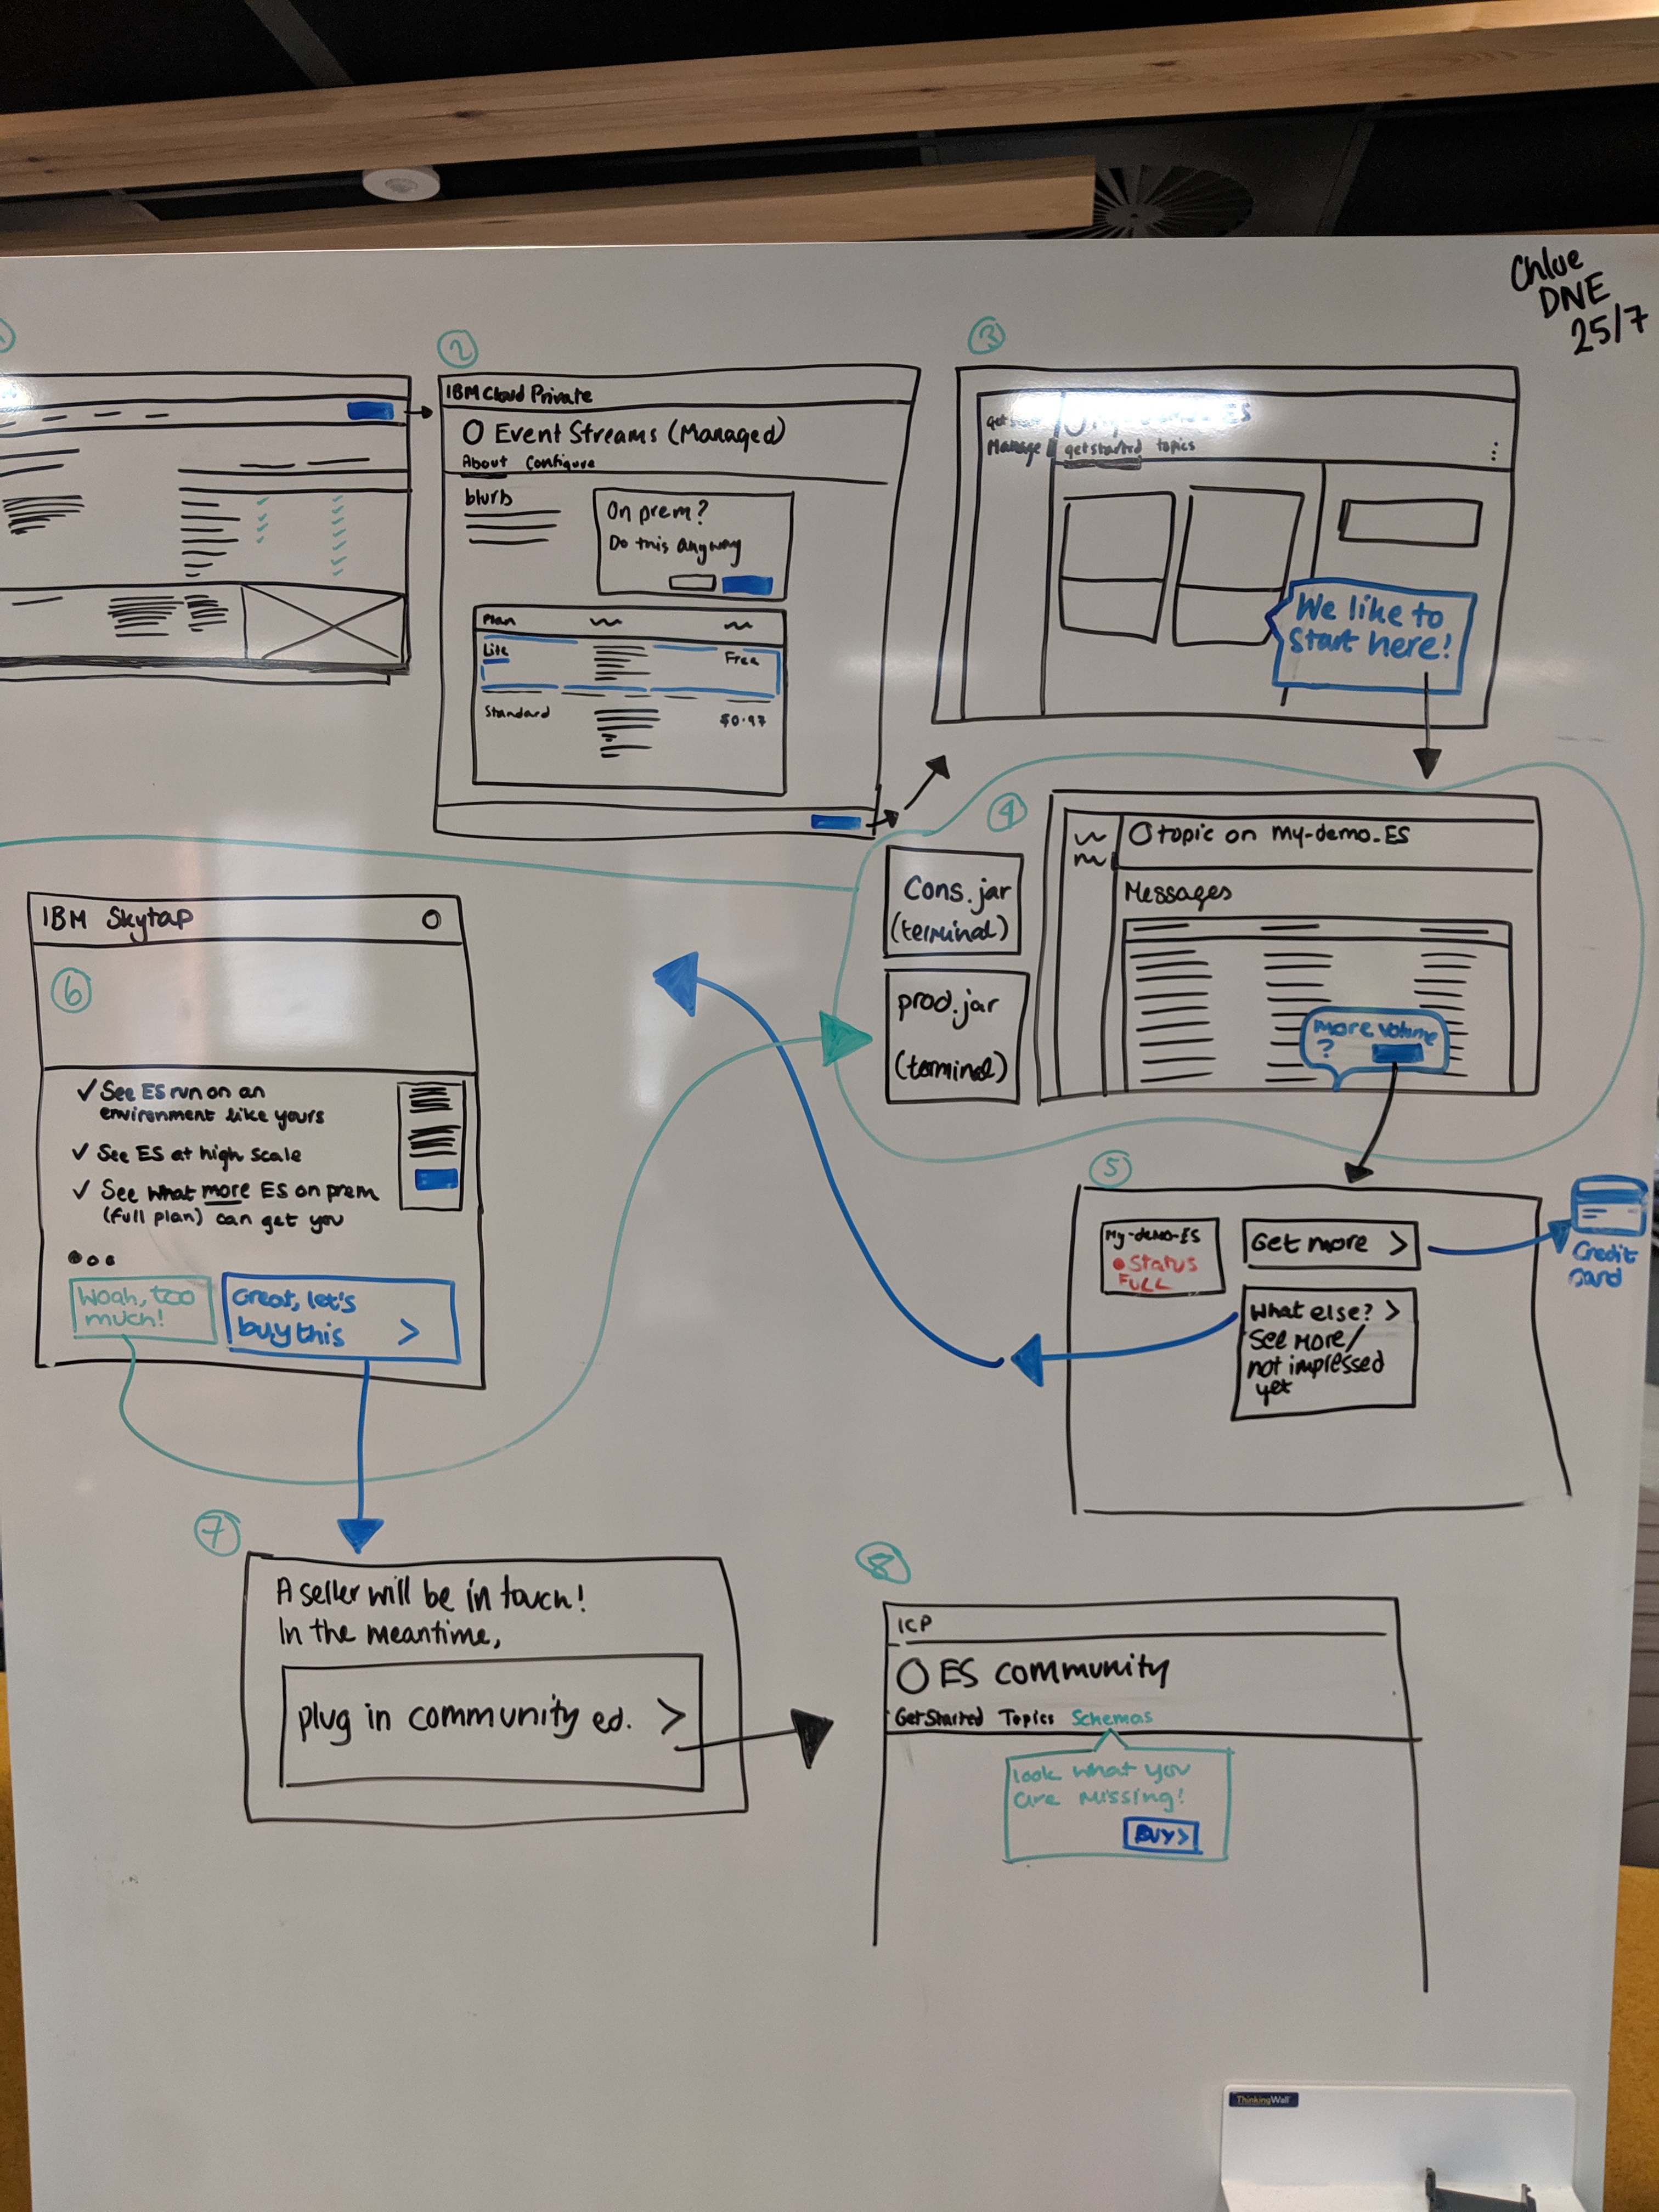 Chloe
DNE
25/7
2
IBM Cloud Private
Event Streams (Managed)
About Configure
blurb
On prem?
Do this anyway
Plan
Lite
Free
Standard
$0.97
3
Manage
get started topics
We like to
Start here!
4
Cons.jar
(terminal)
prod.jar
(terminal)
topic on my-demo-ES
Messages
More volume
?
5
My-demo-ES
Status
FULL
Get more >
Credit
card
What else? >
See More/
not impressed
yet
IBM Skytap
6
✓ See ES run on an
environment like yours
✓ See ES at high scale
✓ See what more ES on prem
(full plan) can get you
Woah, too
much!
Great, let's
buy this >
7
A seller will be in touch!
In the meantime,
plug in community ed. >
8
ICP
ES community
Get Started Topics Schemas
look what you
are missing!
BUY>
ThinkingWall